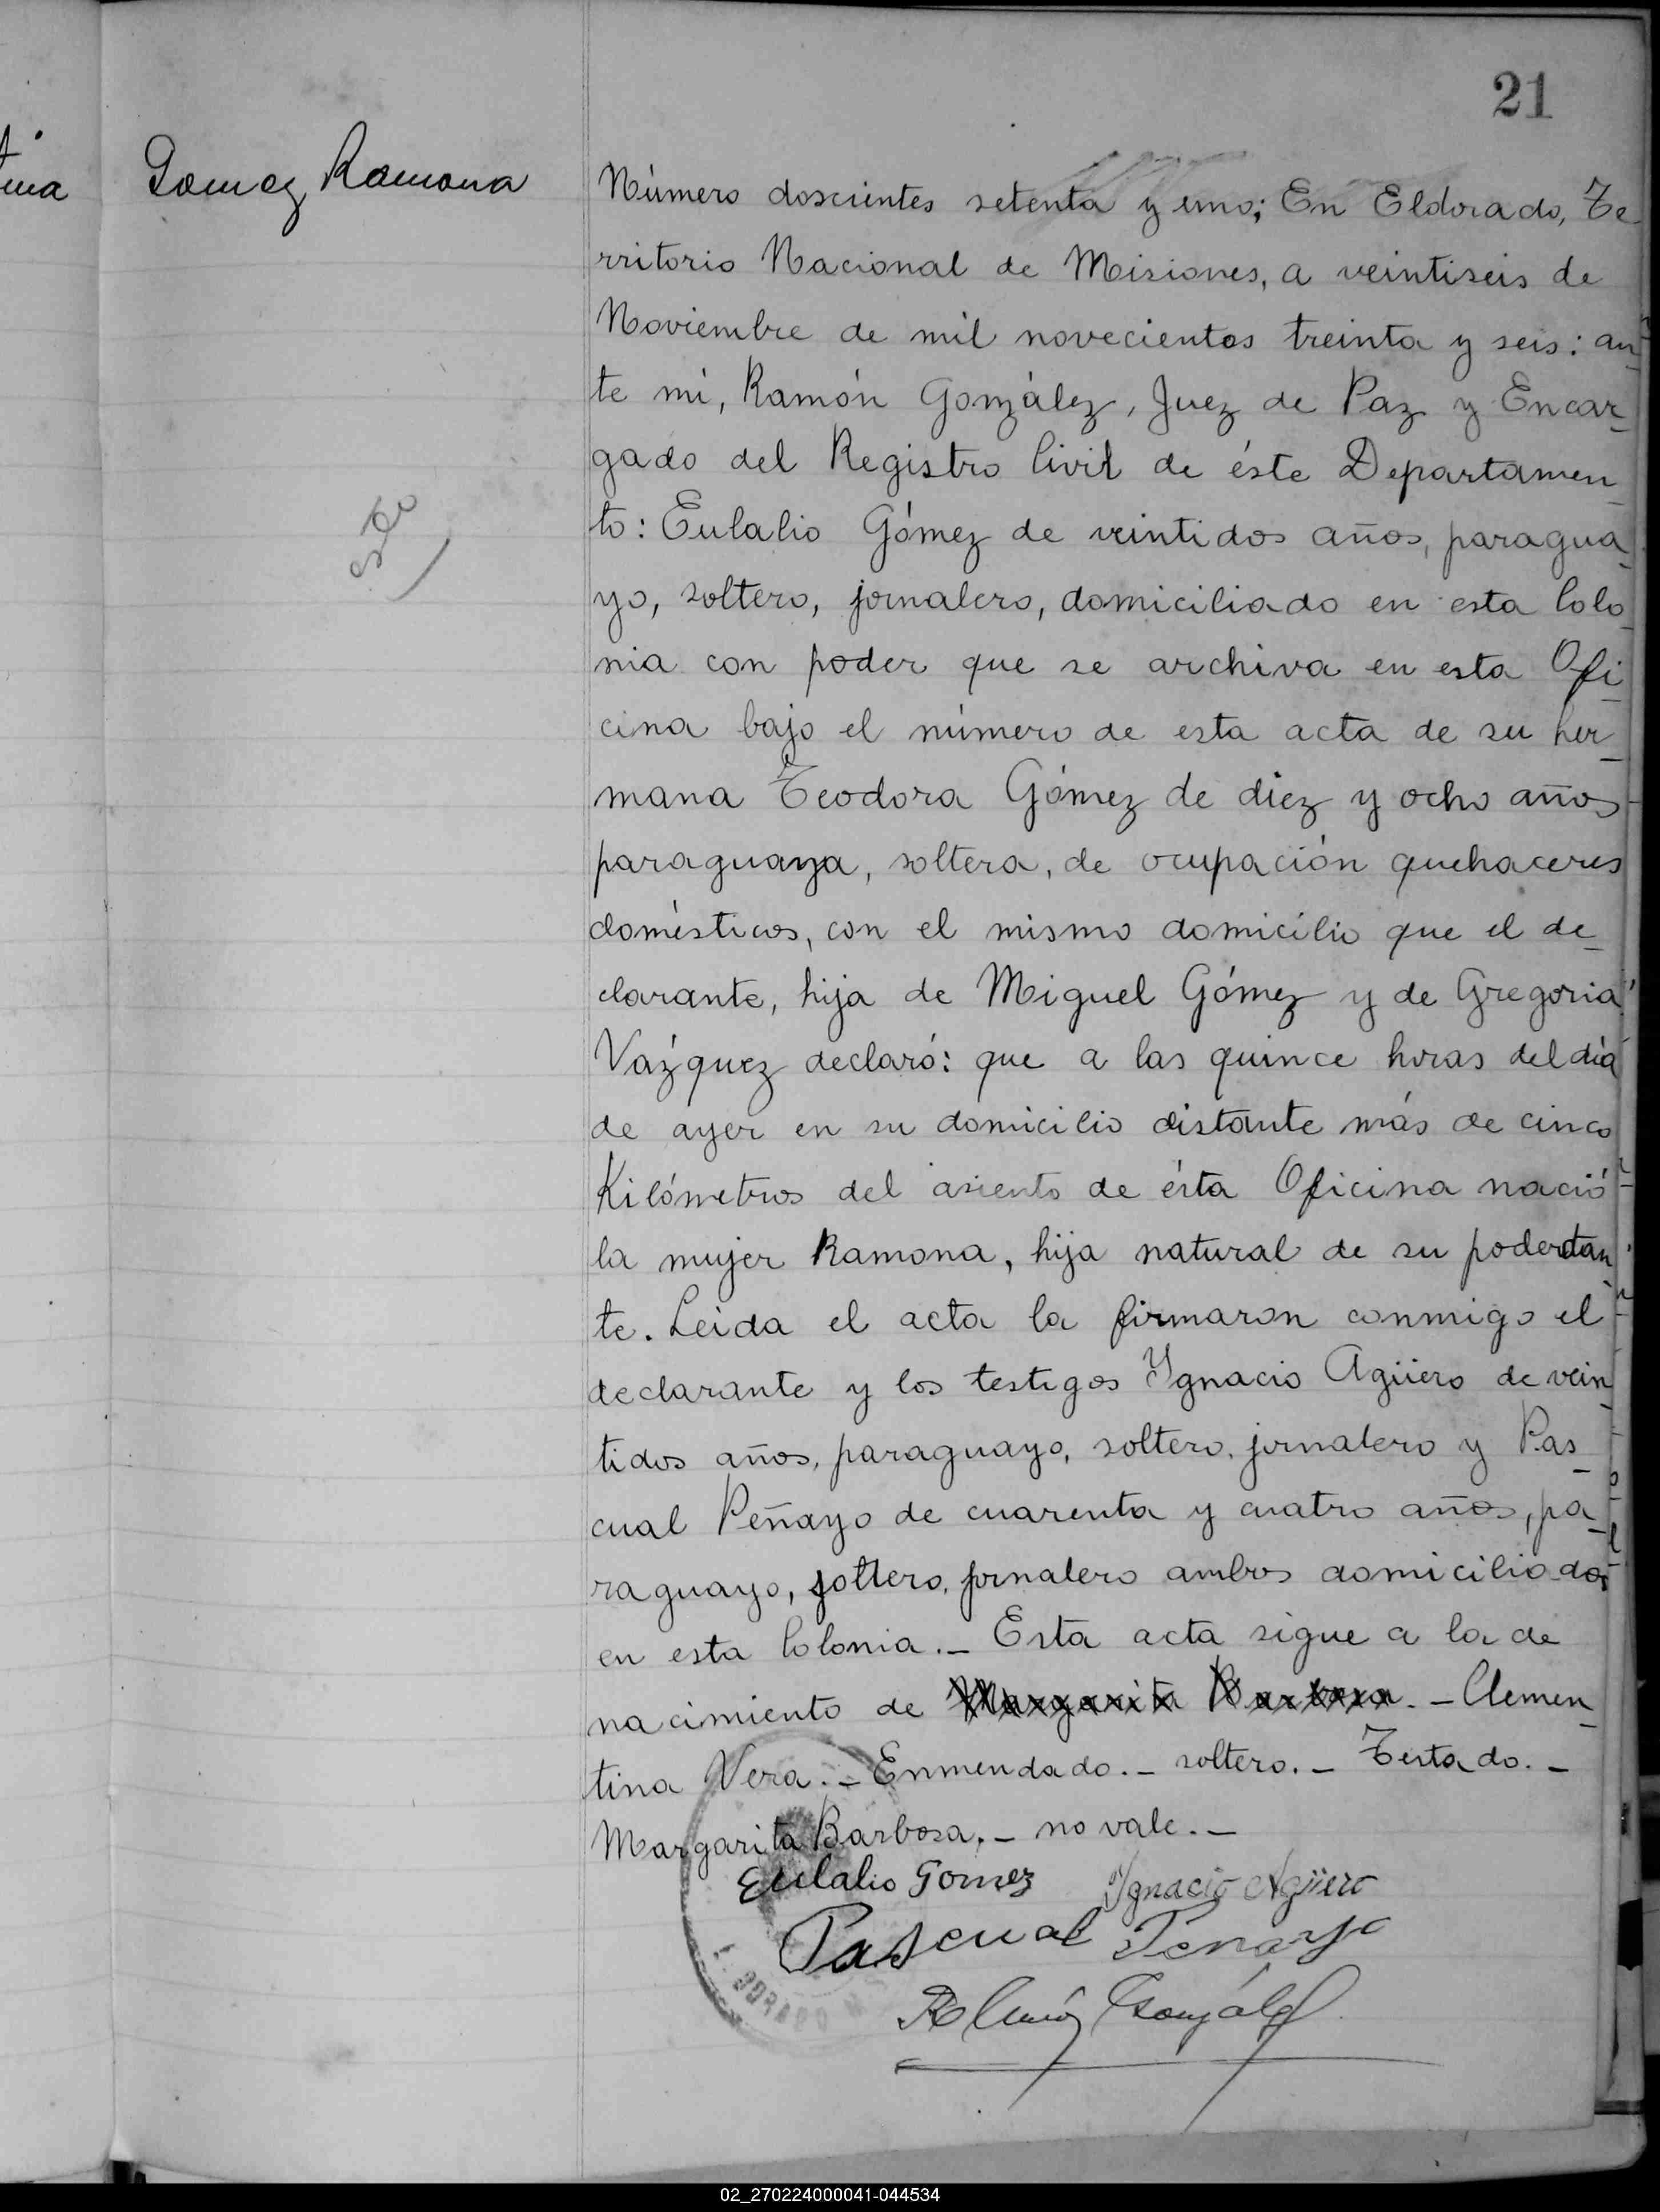 21
tina
Gomez Ramona
Número doscientos setenta y uno; En Eldorado, Te-
rritorio Nacional de Misiones, a veintiseis de
Noviembre de mil novecientos treinta y seis: an-
te mi, Ramón González, Juez de Paz y Encar-
gado del Registro Civil de éste Departamen-
to: Eulalio Gómez de veintidos años, paragua-
yo, soltero, jornalero, domiciliado en esta Colo-
nia con poder que se archiva en esta Ofi-
cina bajo el número de esta acta de su her-
mana Teodora Gómez de diez y ocho años
paraguaya, soltera, de ocupación quehaceres
domésticos, con el mismo domicilio que el de-
clarante, hija de Miguel Gómez y de Gregoria
Vázquez declaró: que a las quince horas del día
de ayer en su domicilio distante más de cinco
Kilómetros del asiento de ésta Oficina nació
la mujer Ramona, hija natural de su poderdan-
te. Leida el acta la firmaron conmigo el
declarante y los testigos Ygnacio Agüero de vein-
tidos años, paraguayo, soltero, jornalero y Pas-
cual Peñayo de cuarenta y cuatro años, pa-
raguayo, soltero, jornalero ambos domiciliados
en esta Colonia._ Esta acta sigue a la de
nacimiento de Margarita Barbosa._ Clemen-
tina Vera._ Enmendado._ soltero._ Testado._
Margarita Barbosa._ no vale._
Eulalio Gomez Ygnacio Agüero
Pascual Penayo
Ramón González
DORADO
02_270224000041-044534